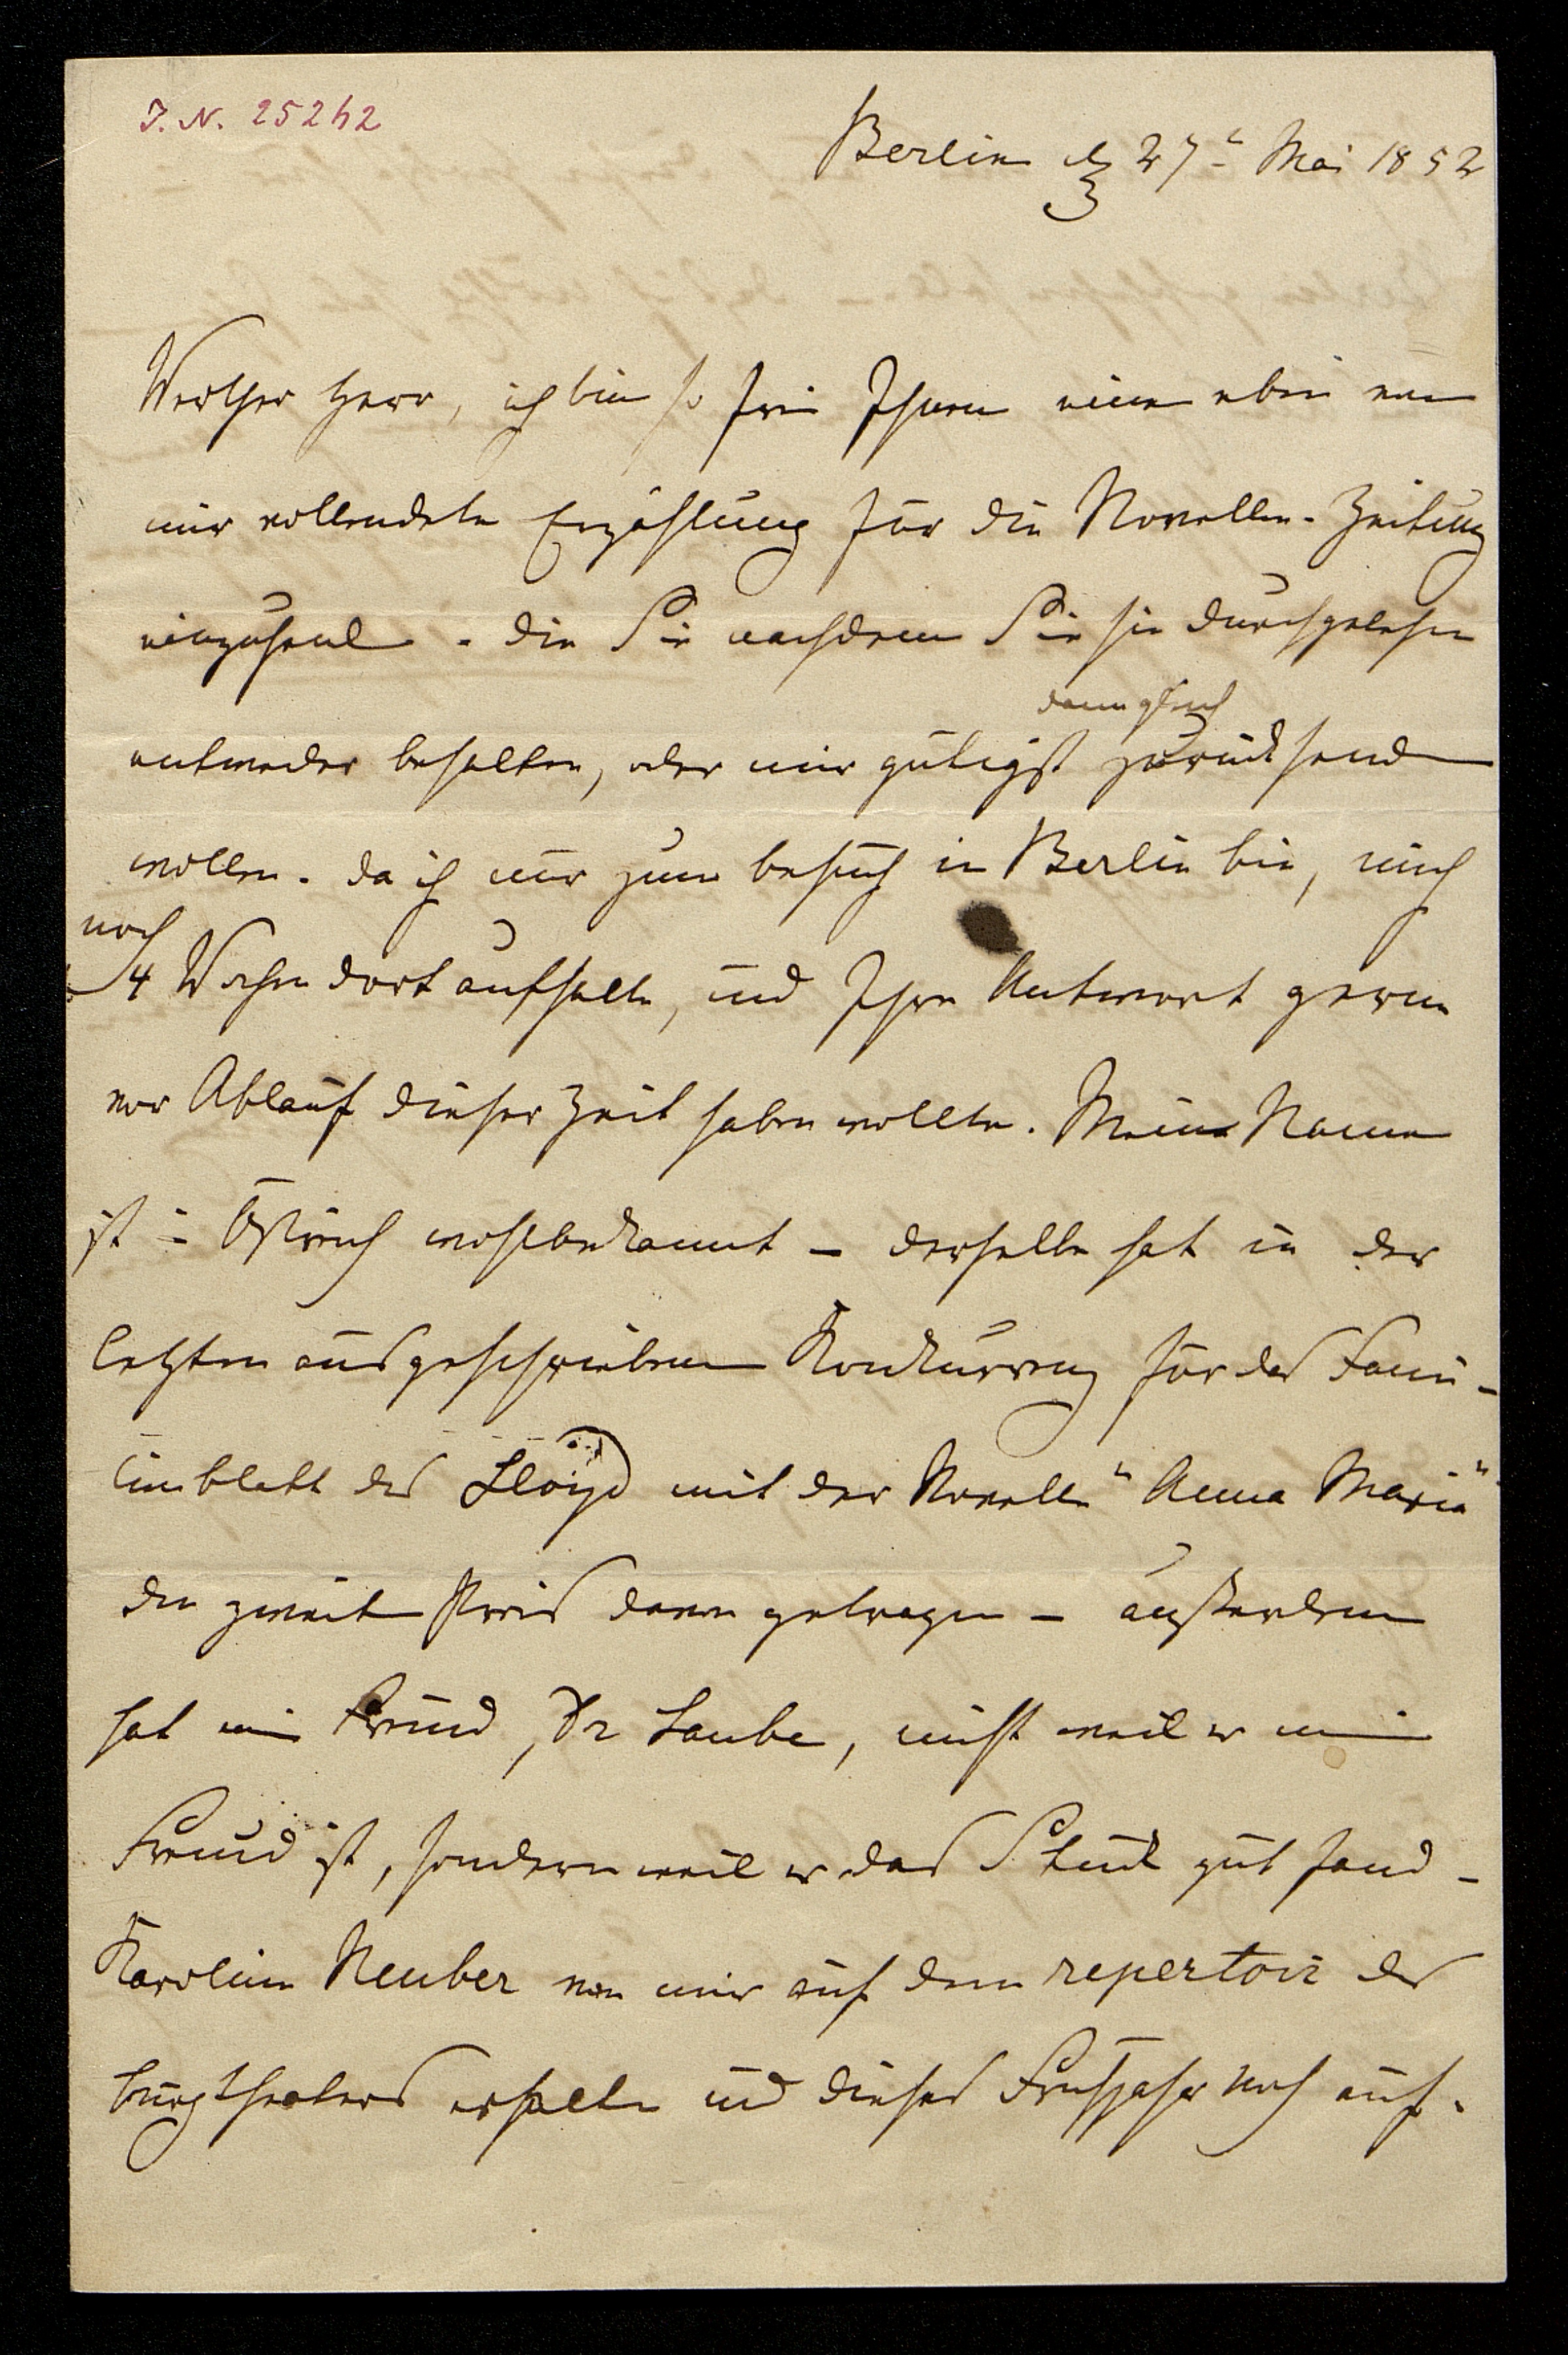 J. N. 25242
Berlin d 27t Mai 1852
Werther Herr, ich bin so frei Ihnen eine eben von
mir vollendete Erzählung für die Novellen-Zeitung
einzusenden - die Sie nachdem Sie sie durchgelesen
dann gleich
entweder behalten, oder mir gütigst zurücksenden
wollen. da ich nur zum besuch in Berlin bin, mich
noch
4 Wochen dort aufhalte, und Ihre Antwort gerne
vor Ablauf dieser Zeit haben wollte. Mein Name
ist in Östreich wohlbekannt – derselbe hat in der
letzten ausgeschriebenen Konkurrenz für das Fami-
lienblatt des Lloyd mit der Novelle "Anna Maria"
den zweiten Preis davon getragen – außerdem
hat mein Freund, Dr Laube, nicht weil er mein
Freund ist, sondern weil er das Stück gut fand –
Karoline Neuber von mir auf dem repertoir des
burgtheaters erhalten und dieses Frühjahr noch auf-